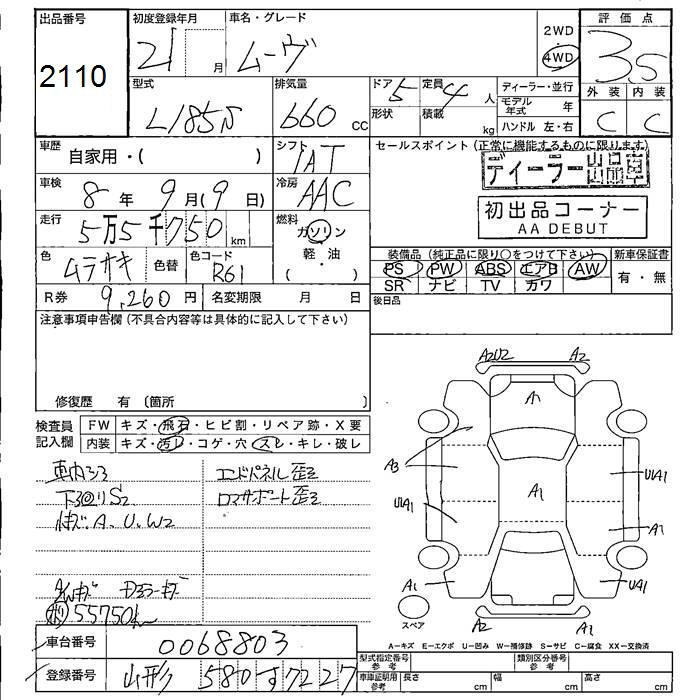 出品番号 2110
初度登録年月 21 月
車名・グレード ムーヴ
2WD
4WD
評価点 3.5
外装 内装
C C
型式 L185S
排気量 660 CC
ドア 5
形状
定員 4 人
積載 kg
ディーラー・並行
モデル年式 年
ハンドル 左・右
車歴 自家用・( )
シフト IAT
車検 8年 9月(9日)
冷房 AAC
走行 5万5千750 km
燃料 ガソリン
軽・油
・( )
色 ムラサキ 色替
色コード R61
R券 9,260円 名変期限 月 日
セールスポイント(正常に機能するものに限ります)
ディーラー出品車
初出品コーナー
AA DEBUT
装備品(純正品に限り〇をつけて下さい) 新車保証書
PS PW ABS エアB AW
SR ナビ TV カワ
有・無
後日品
注意事項申告欄(不具合内容等は具体的に記入して下さい)
修復歴 有 (箇所 )
検査員記入欄
FW キズ・飛石・ヒビ割・リペア跡・X要
内装 キズ・汚レ・コゲ・穴・スレ・キレ・破レ
車内ヨゴ
下廻りS2
キズ. A. U. W2
エンドパネル歪ミ
ロアサポート歪ミ
AWキズ Dミラーキズ
55750km
A2U2 A2
A1
A3
A1
U1A1
U1A1
A1
A1
U1A1
スペア
A2 A1
A-キズ E-エクボ U-凹み W-補修跡 S-サビ C-腐食 XX-交換済
車台番号 0068803
登録番号 山形 580 す 7227
型式指定番号 参考
類別区分番号 参考
車庫証明用 参考 長さ cm 幅 cm 高さ cm